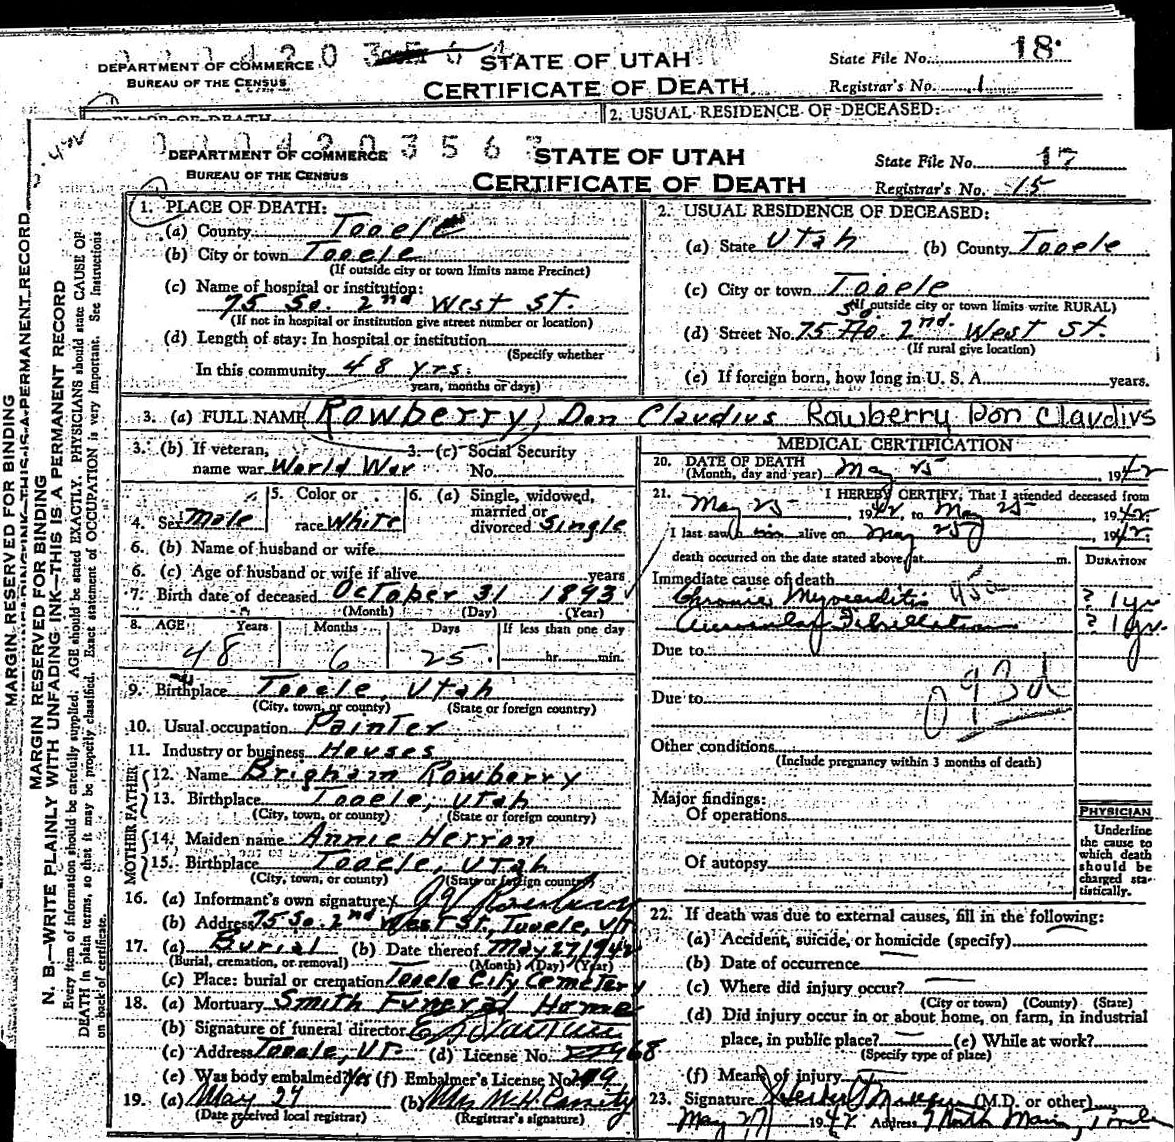 DEPARTMENT OF COMMERCE
BUREAU OF THE CENSUS
STATE OF UTAH
CERTIFICATE OF DEATH
State File No. 18
Registrar's No. 1
PLACE OF DEATH
2. USUAL RESIDENCE OF DECEASED:
DEPARTMENT OF COMMERCE
BUREAU OF THE CENSUS
STATE OF UTAH
CERTIFICATE OF DEATH
State File No. 17
Registrar's No. 15
MARGIN RESERVED FOR BINDING
MARGIN RESERVED FOR BINDING
N. B.—WRITE PLAINLY WITH UNFADING INK—THIS IS A PERMANENT RECORD
Every item of information should be carefully supplied. AGE should be stated EXACTLY. PHYSICIANS should state CAUSE OF
DEATH in plain terms, so that it may be properly classified. Exact statement of OCCUPATION is very important. See Instructions
on back of certificate.
1. PLACE OF DEATH:
(a) County Tooele
(b) City or town Tooele
(If outside city or town limits name Precinct)
(c) Name of hospital or institution:
75 So. 2nd West St.
(If not in hospital or institution give street number or location)
(d) Length of stay: In hospital or institution
(Specify whether
In this community 48 yrs.
years, months or days)
2. USUAL RESIDENCE OF DECEASED:
(a) State Utah (b) County Tooele
(c) City or town Tooele
(If outside city or town limits write RURAL)
(d) Street No. 75 So. 2nd West St.
(If rural give location)
(e) If foreign born, how long in U. S. A. years.
3. (a) FULL NAME Rowberry, Don Claudius Rowberry Don Claudius
3. (b) If veteran,
name war World War
3. (c) Social Security
No.
4. Sex Male
5. Color or
race White
6. (a) Single, widowed,
married or
divorced Single
6. (b) Name of husband or wife
6. (c) Age of husband or wife if alive years
7. Birth date of deceased October 31 1893
(Month) (Day) (Year)
8. AGE Years Months Days If less than one day
48 6 25 hr. min.
9. Birthplace Tooele, Utah
(City, town, or county) (State or foreign country)
10. Usual occupation Painter
11. Industry or business Houses
FATHER
12. Name Brigham Rowberry
13. Birthplace Tooele, Utah
(City, town, or county) (State or foreign country)
MOTHER
14. Maiden name Annie Herron
15. Birthplace Tooele, Utah
(City, town, or county) (State or foreign country)
16. (a) Informant's own signature
(b) Address 75 So. 2nd West St., Tooele, Ut
17. (a) Burial (b) Date thereof May 27 1942
(Burial, cremation, or removal) (Month) (Day) (Year)
(c) Place: burial or cremation Tooele City Cemetery
18. (a) Mortuary Smith Funeral Home
(b) Signature of funeral director
(c) Address Tooele, Ut. (d) License No.
(e) Was body embalmed? Yes (f) Embalmer's License No.
19. (a) May 27 (b) Mrs M.H.
(Date received local registrar) (Registrar's signature)
MEDICAL CERTIFICATION
20. DATE OF DEATH
(Month, day and year) May 25, 1942
21. I HEREBY CERTIFY, That I attended deceased from
May 25, 1942, to May 25, 1942
I last saw him alive on May 25, 1942.
death occurred on the date stated above, at m.
DURATION
Immediate cause of death
Chronic Myocarditis 95a ? 1 yr
Auricular Fibrillation ? 1 yr.
Due to
Due to
093d
Other conditions
(Include pregnancy within 3 months of death)
Major findings:
Of operations
Of autopsy
PHYSICIAN
Underline
the cause to
which death
should be
charged sta-
tistically.
22. If death was due to external causes, fill in the following:
(a) Accident, suicide, or homicide (specify)
(b) Date of occurrence
(c) Where did injury occur?
(City or town) (County) (State)
(d) Did injury occur in or about home, on farm, in industrial
place, in public place? (e) While at work?
(Specify type of place)
(f) Means of injury
23. Signature (M.D. or other)
May 27 1942 Address North Main, Tooele